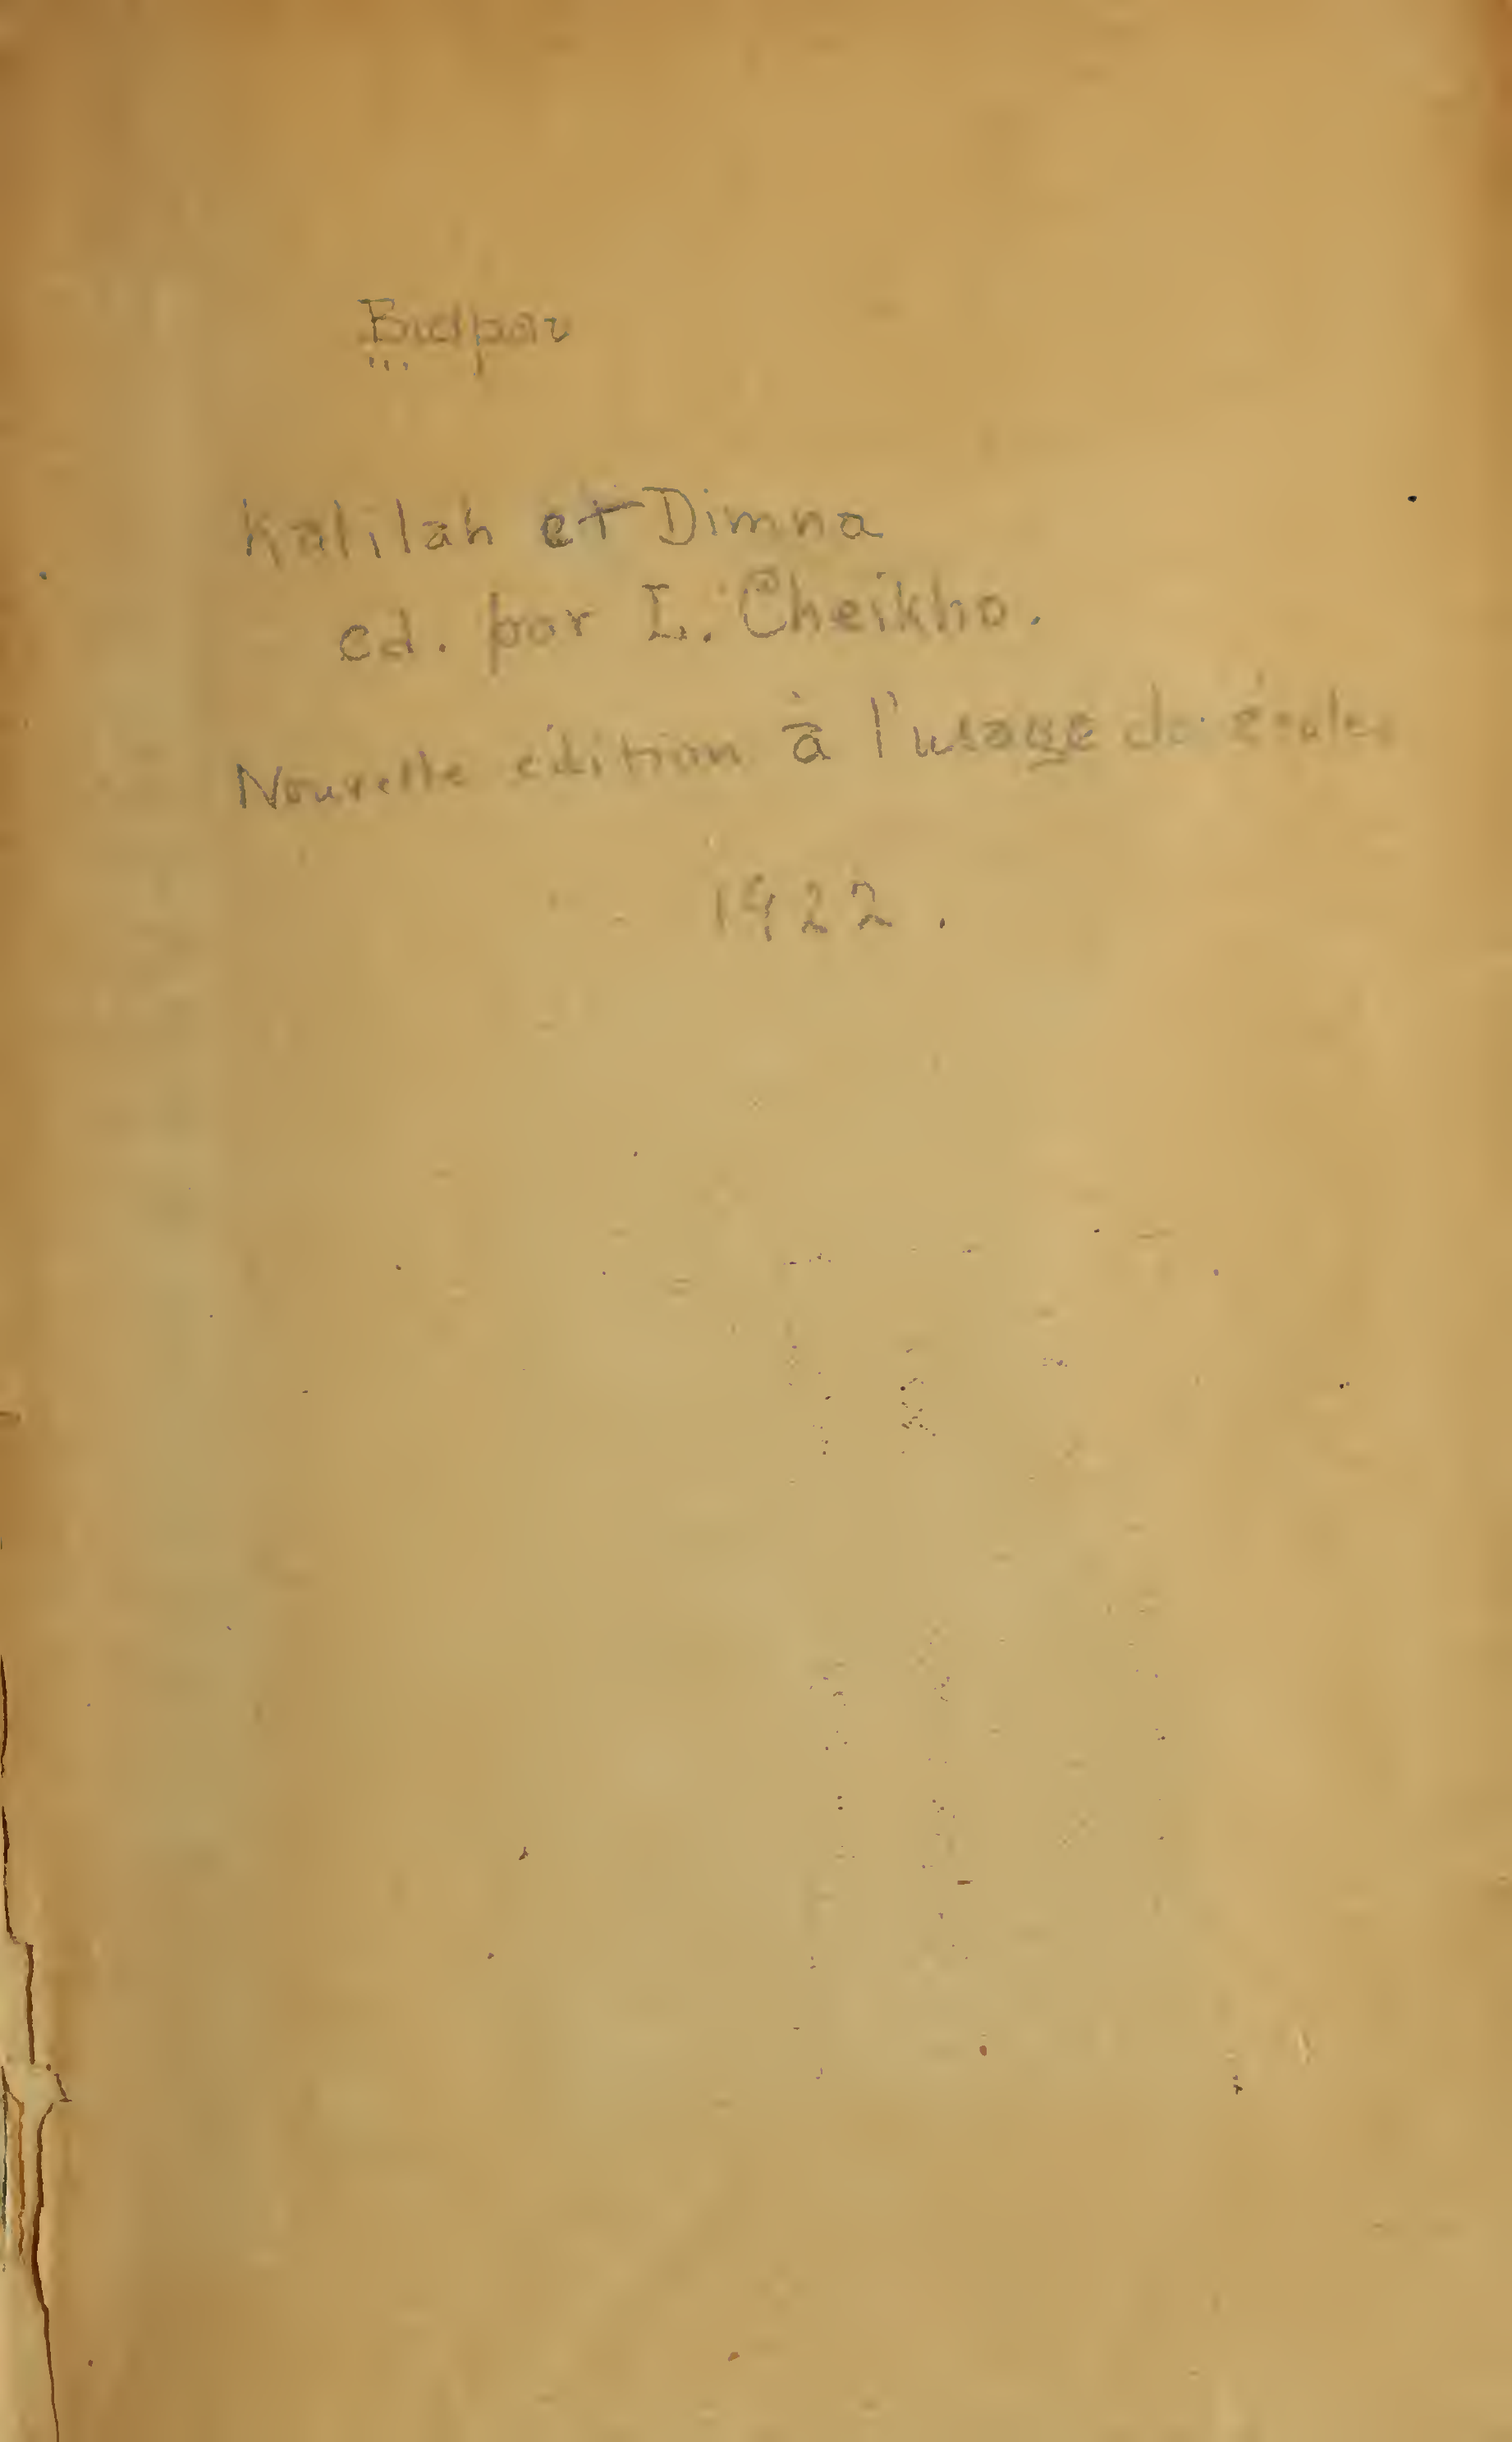 Bidpai
Kalilah et Dimna
ed. par L. Cheikho.
Nouvelle édition à l'usage de écoles
1922.